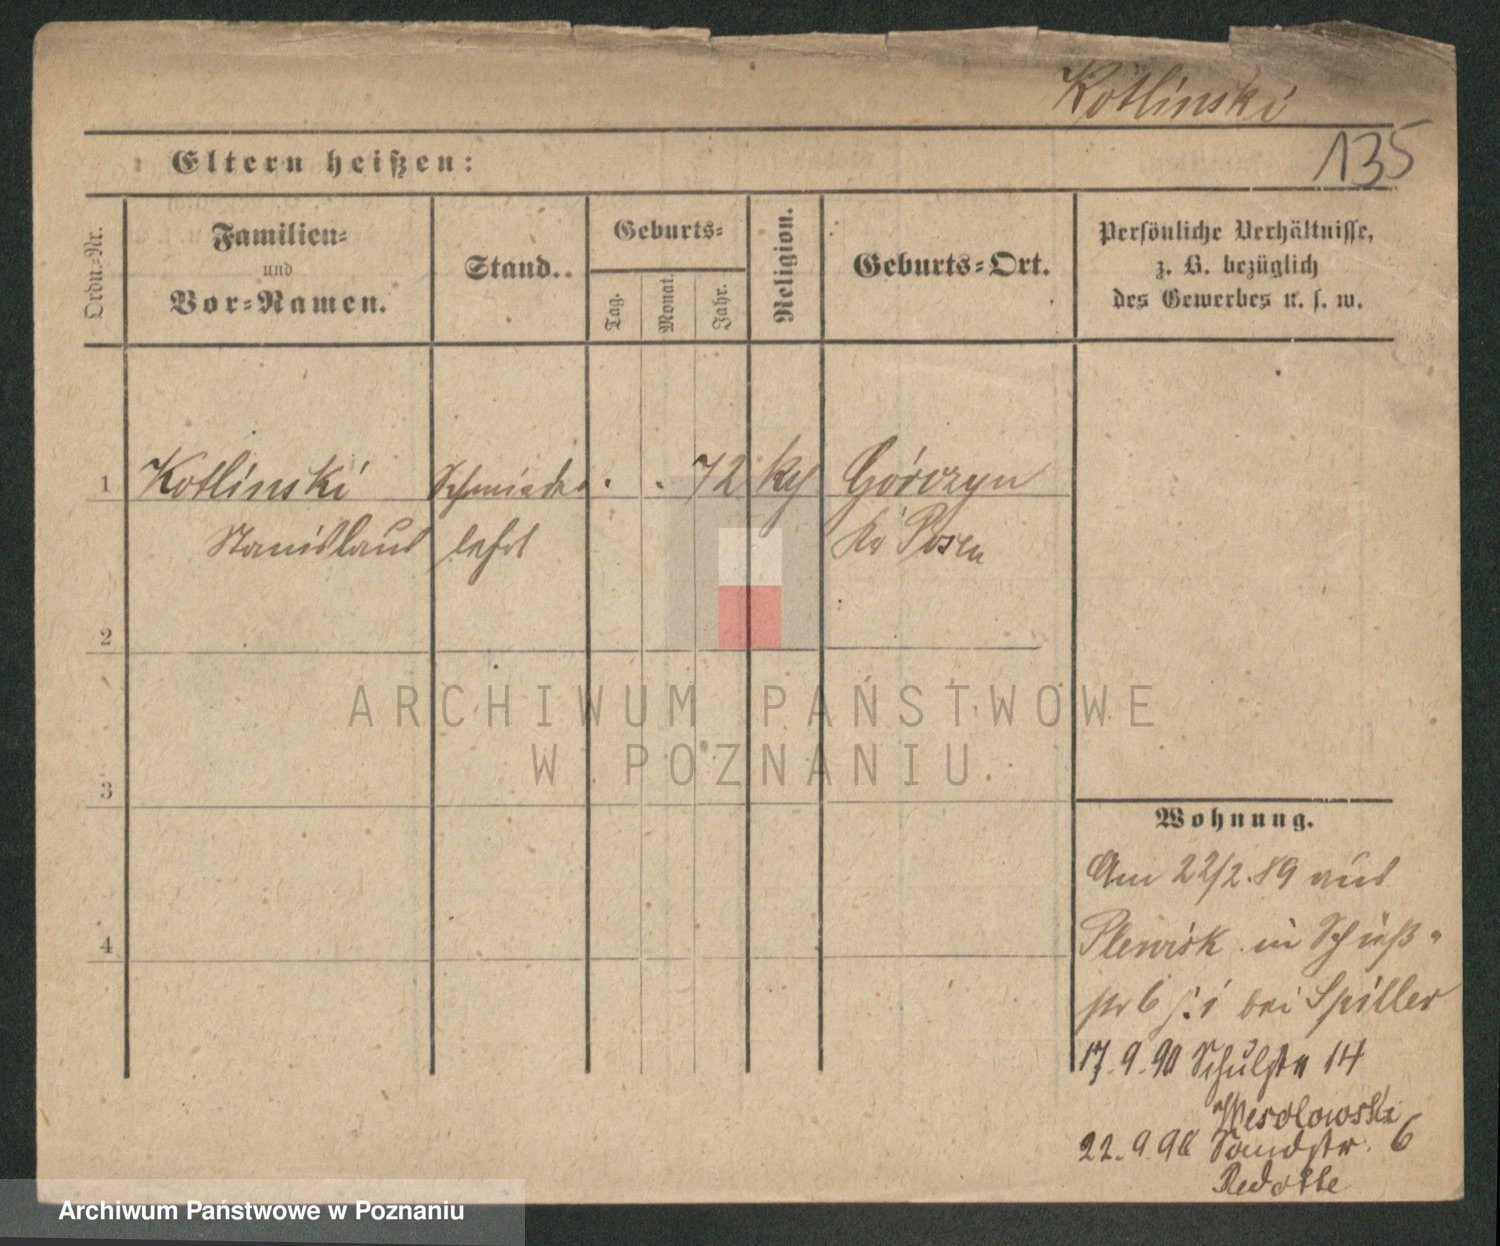 Kotlinski
135
Eltern heißen:
Ordn.-Nr.
Familien-
und
Vor-Namen.
Stand.
Geburts-
Tag.
Monat.
Jahr.
Religion.
Geburts-Ort.
Persönliche Verhältnisse,
z. B. bezüglich
des Gewerbes u. s. w.
1 Kotlinski Schmiede . . 72 Górczyn
Stanislaus lehrl Posen
2
3
4
ARCHIWUM PAŃSTWOWE
W POZNANIU
Wohnung.
Am 22/2.89 aus
Plewisk in Schieß-
str 6 bei Spiller
17.9.90 Schulstr 14
Wesolowski
22.9.90 Sandstr. 6
Archiwum Państwowe w Poznaniu